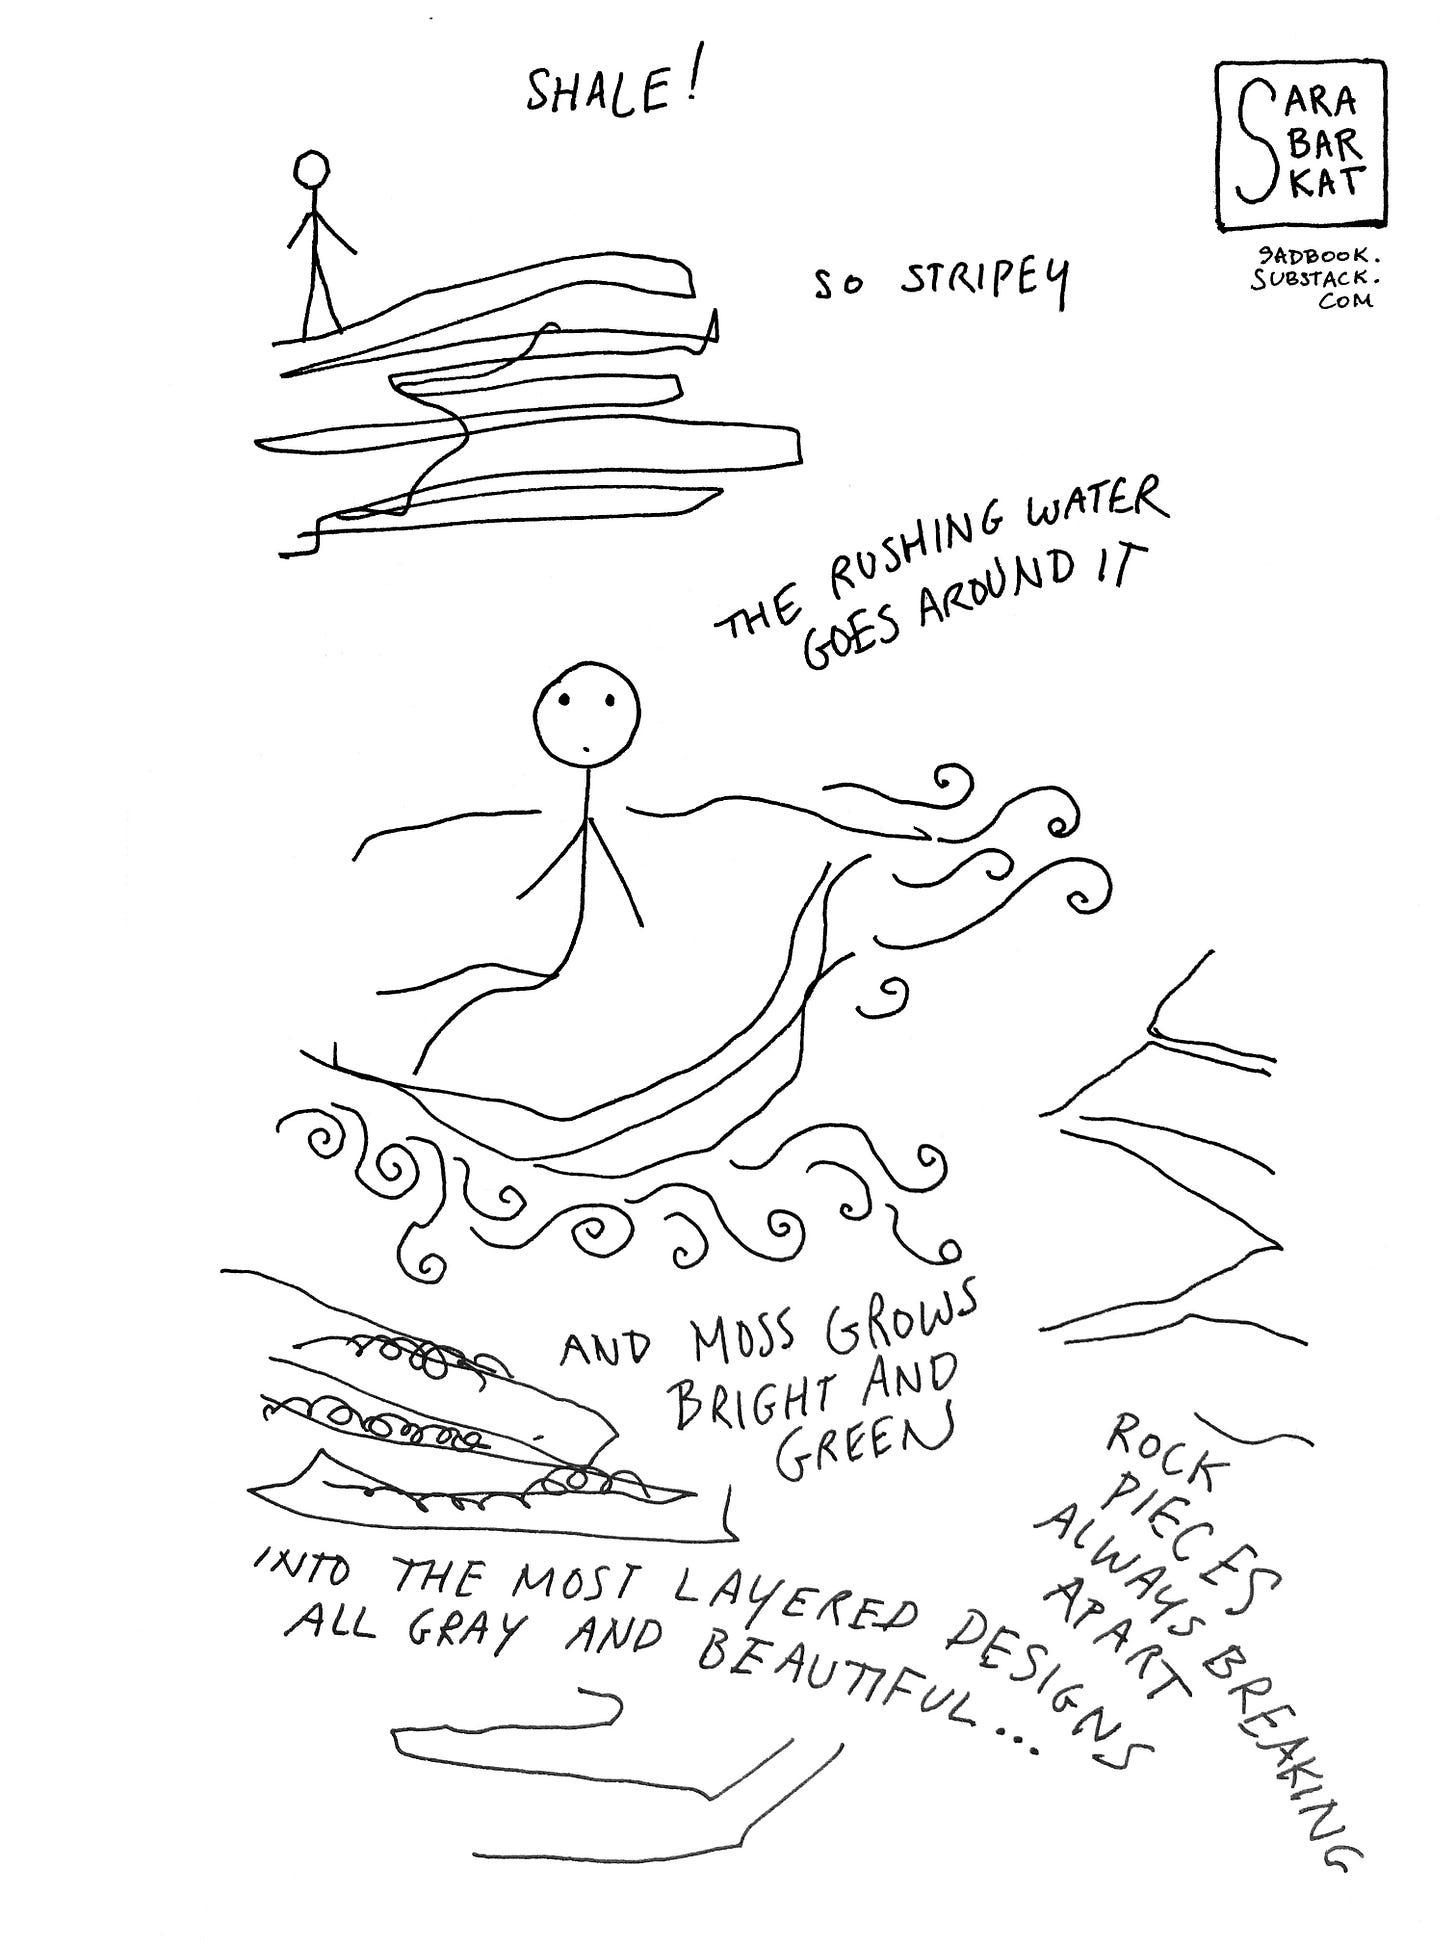 SHALE!
SARA
BAR
KAT
SADBOOK.
SUBSTACK.
COM
SO STRIPEY
THE RUSHING WATER
GOES AROUND IT
AND MOSS GROWS
BRIGHT AND
GREEN
ROCK
PIECES
ALWAYS BREAKING
APART
INTO THE MOST LAYERED DESIGNS
ALL GRAY AND BEAUTIFUL...